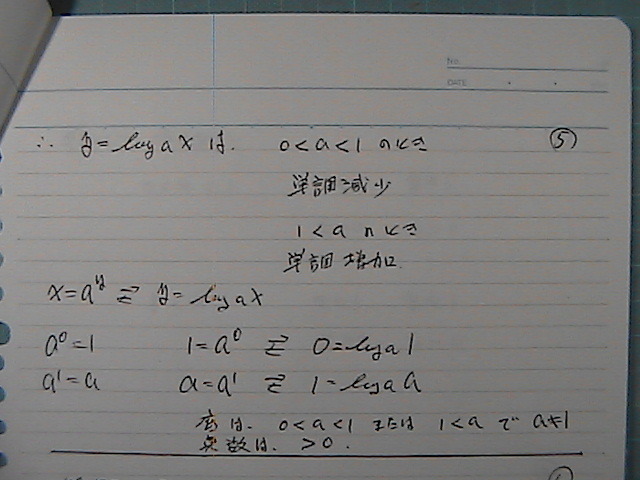 No.
DATE
∴ y = log a x は. 0 < a < 1 のとき ⑤
単調減少
1 < a のとき
単調増加.
x = a^y ⇄ y = log a x
a^0 = 1 1 = a^0 ⇄ 0 = log a 1
a^1 = a a = a^1 ⇄ 1 = log a a
底は. 0 < a < 1 または 1 < a で a ≠ 1
真数は. > 0.